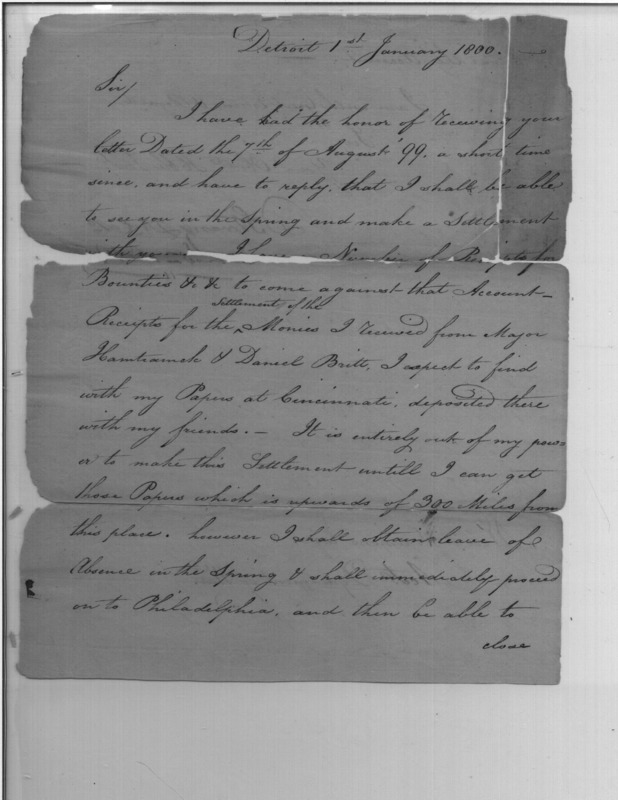 Detroit 1st January 1800.
Sir/
I have had the honor of receiving your
letter Dated the 7th of August 99. a short time
since, and have to reply, that I shall be able
to see you in the Spring and make a Settlement
with you I have Number of Receipts for
Bounties & & to come against that Account —
Settlement of the
Receipts for the ^ Monies I received from Major
Hamtramck & Daniel Britt, I aspect to find
with my Papers at Cincinnati, deposited there
with my friends. — It is entirely out of my pow
er to make this Settlement untill I can get
those Papers which is upwards of 300 Miles from
this place. however I shall obtain leave of
Absence in the Spring & shall immediately proceed
on to Philadelphia, and then be able to
close